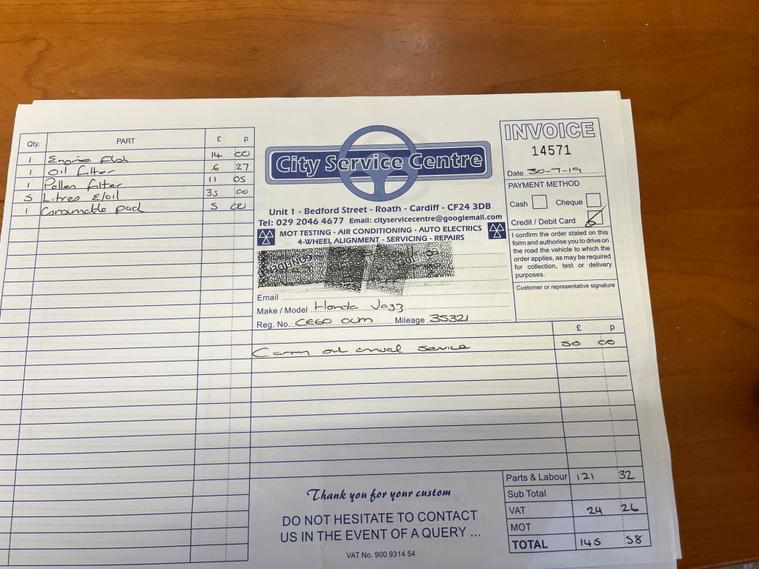 Qty. PART £ P
1 Engine Flush 14 00
1 Oil filter 6 27
1 Pollen filter 11 05
5 Litres e/oil 35 00
1 Consumable pad 5 00
City Service Centre
Unit 1 - Bedford Street - Roath - Cardiff - CF24 3DB
Tel: 029 2046 4677 Email: cityservicecentre@googlemail.com
MOT TESTING - AIR CONDITIONING - AUTO ELECTRICS
4-WHEEL ALIGNMENT - SERVICING - REPAIRS
Email
Make / Model Honda Jazz
Reg. No. CE60 OUM Mileage 35321
INVOICE
14571
Date 30-7-19
PAYMENT METHOD
Cash Cheque
Credit / Debit Card
I confirm the order stated on this
form and authorise you to drive on
the road the vehicle to which the
order applies, as may be required
for collection, test or delivery
purposes.
Customer or representative signature
£ P
Carry out annual service 50 00
Thank you for your custom
DO NOT HESITATE TO CONTACT
US IN THE EVENT OF A QUERY ...
VAT No. 900 9314 54
Parts & Labour 121 32
Sub Total
VAT 24 26
MOT
TOTAL 145 58